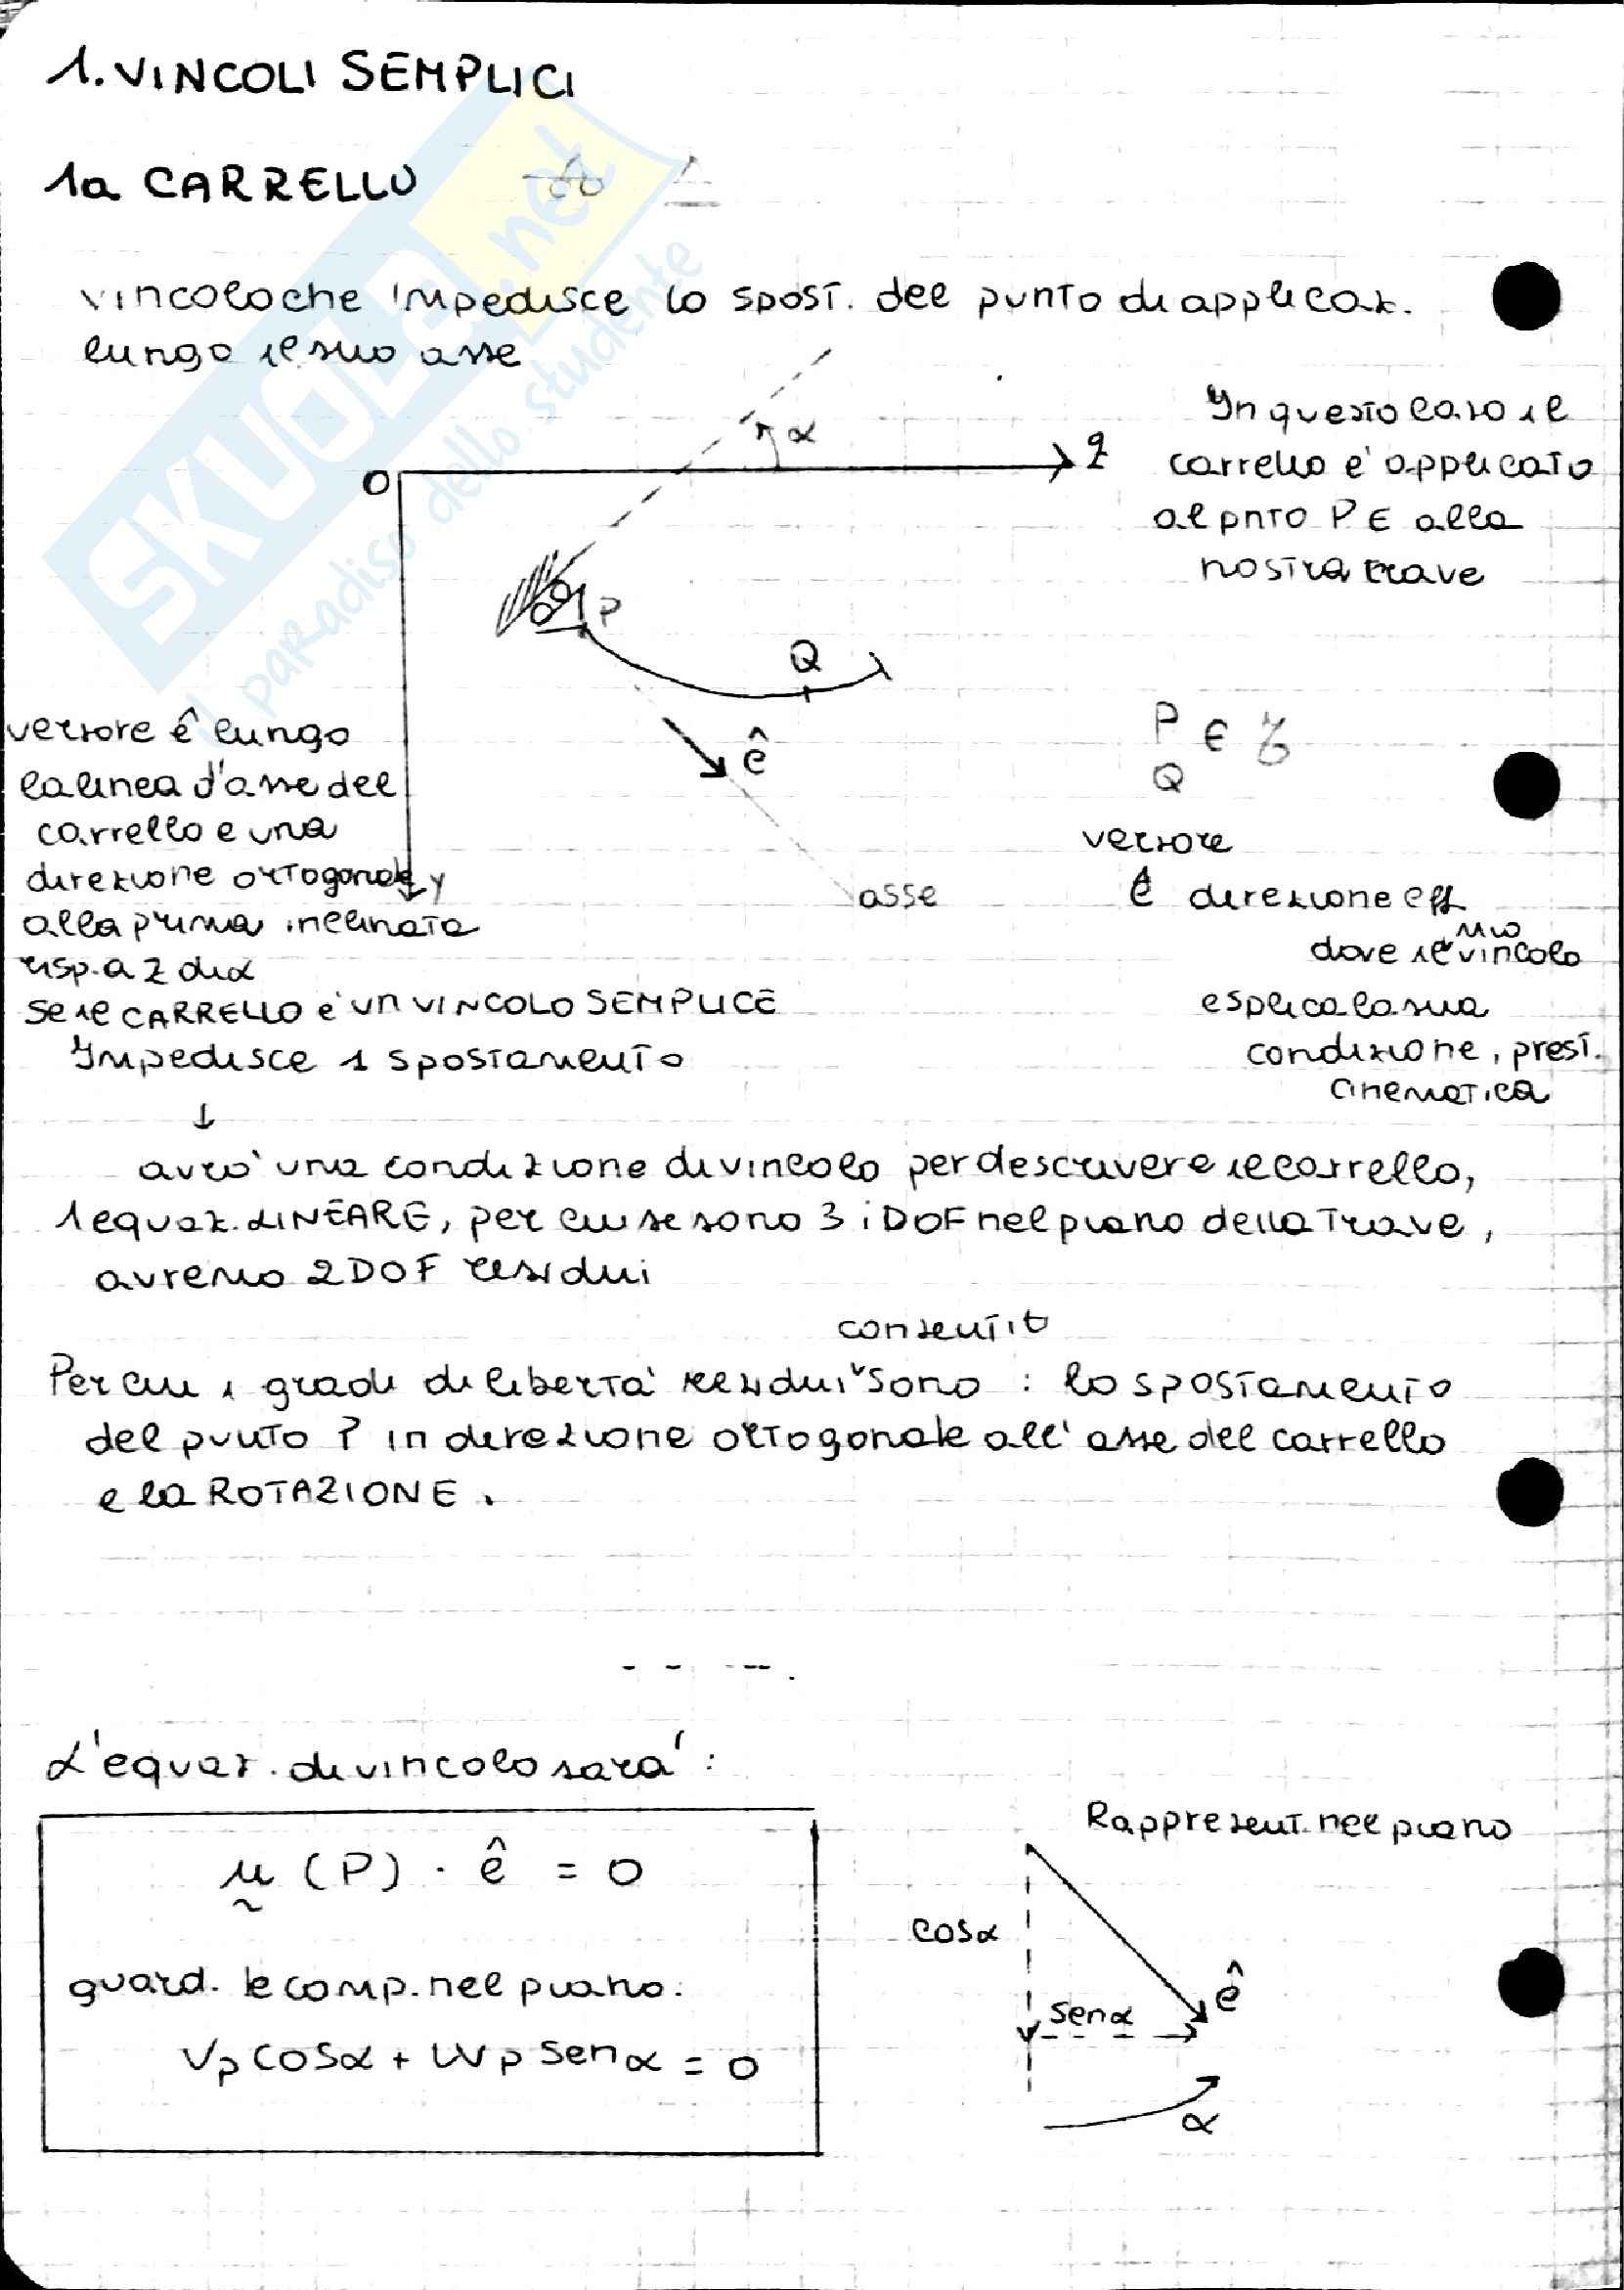 1. VINCOLI SEMPLICI
1a CARRELLO
vincolo che impedisce lo spost. del punto di applicaz.
lungo il suo asse
α
O
z
In questo caso il
carrello e' applicato
al pnto P ∈ alla
nostra trave
P
Q
ê
asse
y
P
Q ∈
versore ê lungo
la linea d'asse del
carrello e una
direzione ortogonale
alla prima inclinata
risp. a z di α
versore
ê direzione eff
dove il suo vincolo
esplica la sua
condizione, prest.
cinematica
Se il CARRELLO e' un VINCOLO SEMPLICE
Impedisce 1 spostamento
↓
avro' una condizione di vincolo per descrivere il carrello,
1 equaz. LINEARE, per cui se sono 3 i DOF nel piano della Trave,
avremo 2 DOF residui
Per cui i gradi di liberta' residui consentiti sono : lo spostamento
del punto P in direzione ortogonale all'asse del carrello
e la ROTAZIONE.
L'equaz. di vincolo sara' :
u (P) · ê = 0
~
guard. le comp. nel piano:
Vp cosα + Wp senα = 0
Rappresent. nel piano
cosα
senα
ê
α
SKUOLA.net
il paradiso dello studente